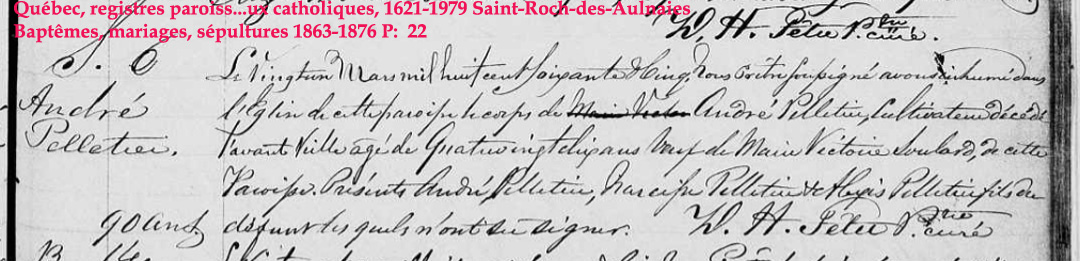 Québec, registres paroiss...ux catholiques, 1621-1979 Saint-Roch-des-Aulnaies
Baptêmes, mariages, sépultures 1863-1876 P: 22
D. H. Têtu Ptre curé.
S. 6
Le vingt un Mars mil huit cent soixante & cinq, Nous Prêtre soussigné avons inhumé dans
André
l'Eglise de cette paroisse le corps de Marie Victoi André Pelletier, Cultivateur décédé
Pelletier.
l'avant veille agé de Quatre vingt dix ans Veuf de Marie Victoire Soulard, de cette
Paroisse. Présents André Pelletier, Narcisse Pelletier & Alexis Pelletier fils du
90 ans
défunt lesquels n'ont su signer. D. H. Têtu Ptre curé